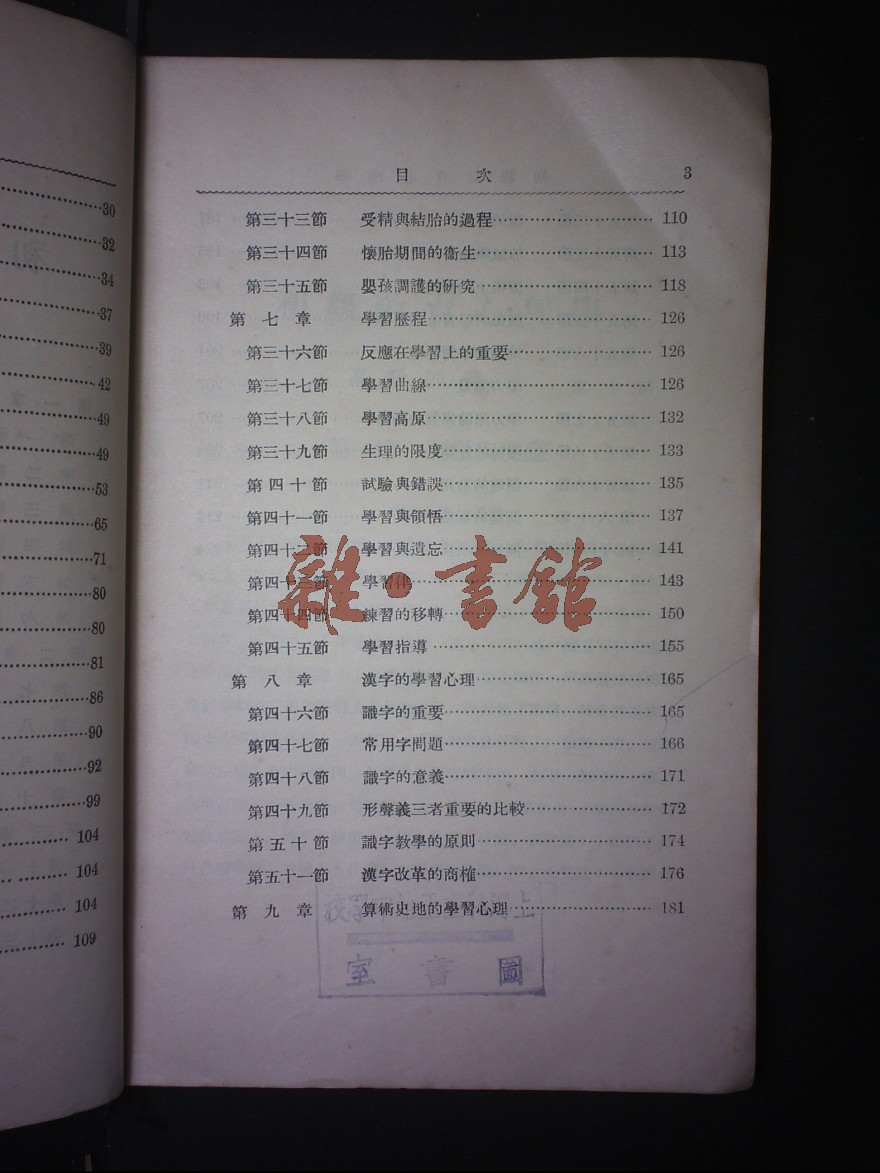 30
32
34
37
39
42
49
49
53
65
71
80
80
81
86
90
92
99
104
104
104
109
目 次 3
第三十三節 受精與結胎的過程 110
第三十四節 懷胎期間的衞生 113
第三十五節 嬰孩調護的研究 118
第七章 學習歷程 126
第三十六節 反應在學習上的重要 126
第三十七節 學習曲線 126
第三十八節 學習高原 132
第三十九節 生理的限度 133
第四十節 試驗與錯誤 135
第四十一節 學習與領悟 137
第四十二節 學習與遺忘 141
第四十三節 學習律 143
第四十四節 練習的移轉 150
第四十五節 學習指導 155
第八章 漢字的學習心理 165
第四十六節 識字的重要 165
第四十七節 常用字問題 166
第四十八節 識字的意義 171
第四十九節 形聲義三者重要的比較 172
第五十節 識字教學的原則 174
第五十一節 漢字改革的商榷 176
第九章 算術史地的學習心理 181
雜·書館
圖書室